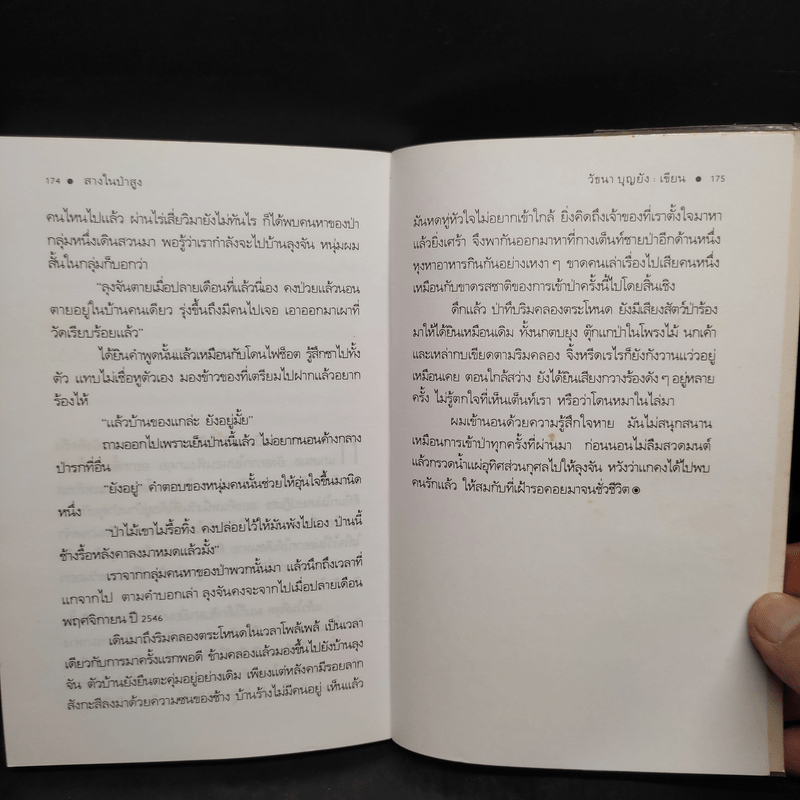 174 ● สางในป่าสูง
คนไหนไปแล้ว ผ่านไร่เสี่ยวิมายังไม่ทันไร ก็ได้พบคนหาของป่า
กลุ่มหนึ่งเดินสวนมา พอรู้ว่าเรากำลังจะไปบ้านลุงจัน หนุ่มผม
สั้นในกลุ่มก็บอกว่า
“ลุงจันตายเมื่อปลายเดือนที่แล้วนี่เอง คงป่วยแล้วนอน
ตายอยู่ในบ้านคนเดียว รุ่งขึ้นถึงมีคนไปเจอ เอาออกมาเผาที่
วัดเรียบร้อยแล้ว”
ได้ยินคำพูดนั้นแล้วเหมือนกับโดนไฟช็อต รู้สึกชาไปทั้ง
ตัว แทบไม่เชื่อหูตัวเอง มองข้าวของที่เตรียมไปฝากแล้วอยาก
ร้องไห้
“แล้วบ้านของแกล่ะ ยังอยู่มั้ย”
ถามออกไปเพราะเย็นป่านนี้แล้ว ไม่อยากนอนค้างกลาง
ป่ารกที่อื่น
“ยังอยู่” คำตอบของหนุ่มคนนั้นช่วยให้อุ่นใจขึ้นมานิด
หนึ่ง
“ป่าไม้เขาไม่รื้อทิ้ง คงปล่อยไว้ให้มันพังไปเอง ป่านนี้
ช้างรื้อหลังคาลงมาหมดแล้วมั้ง”
เราจากกลุ่มคนหาของป่าพวกนั้นมา แล้วนึกถึงเวลาที่
แกจากไป ตามคำบอกเล่า ลุงจันคงจะจากไปเมื่อปลายเดือน
พฤศจิกายน ปี 2546
เดินมาถึงริมคลองตระโหนดในเวลาโพล้เพล้ เป็นเวลา
เดียวกับการมาครั้งแรกพอดี ข้ามคลองแล้วมองขึ้นไปยังบ้านลุง
จัน ตัวบ้านยังยืนตะคุ่มอยู่อย่างเดิม เพียงแต่หลังคามีรอยลาก
สังกะสีลงมาด้วยความซนของช้าง บ้านร้างไม่มีคนอยู่ เห็นแล้ว
วัธนา บุญยัง : เขียน ● 175
มันหดหู่หัวใจไม่อยากเข้าใกล้ ยิ่งคิดถึงเจ้าของที่เราตั้งใจมาหา
แล้วยิ่งเศร้า จึงพากันออกมาหาที่กางเต็นท์ชายป่าอีกด้านหนึ่ง
หุงหาอาหารกินกันอย่างเหงาๆ ขาดคนเล่าเรื่องไปเสียคนหนึ่ง
เหมือนกับขาดรสชาติของการเข้าป่าครั้งนี้ไปโดยสิ้นเชิง
ดึกแล้ว ป่าทึบริมคลองตระโหนด ยังมีเสียงสัตว์ป่าร้อง
มาให้ได้ยินเหมือนเดิม ทั้งนกตบยุง ตุ๊กแกป่าในโพรงไม้ นกเค้า
และเหล่ากบเขียดตามริมคลอง จิ้งหรีดเรไรก็ยังกังวานแว่วอยู่
เหมือนเคย ตอนใกล้สว่าง ยังได้ยินเสียงกวางร้องดังๆ อยู่หลาย
ครั้ง ไม่รู้ตกใจที่เห็นเต็นท์เรา หรือว่าโดนหมาในไล่มา
ผมเข้านอนด้วยความรู้สึกใจหาย มันไม่สนุกสนาน
เหมือนการเข้าป่าทุกครั้งที่ผ่านมา ก่อนนอนไม่ลืมสวดมนต์
แล้วกรวดน้ำแผ่อุทิศส่วนกุศลไปให้ลุงจัน หวังว่าแกคงได้ไปพบ
คนรักแล้ว ให้สมกับที่เฝ้ารอคอยมาจนชั่วชีวิต ◉